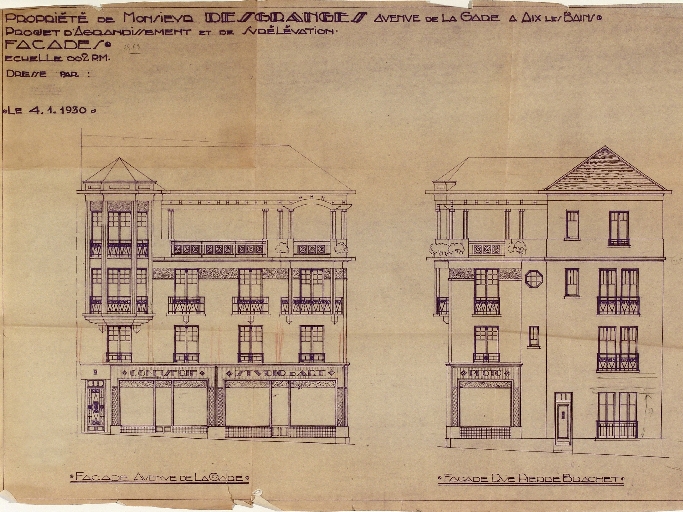 PROPRIÉTÉ DE MONSIEUR DESGRANGES AVENUE DE LA GARE A AIX LES BAINS
PROJET D'AGRANDISSEMENT ET DE SURÉLÉVATION.
FACADES
ECHELLE 002 P.M.
DRESSE PAR :
LE 4.1.1930
CONFISERIE STUDIO D'ART
PHOTO
FACADE AVENUE DE LA GARE
FACADE RUE PIERRE BRACHET